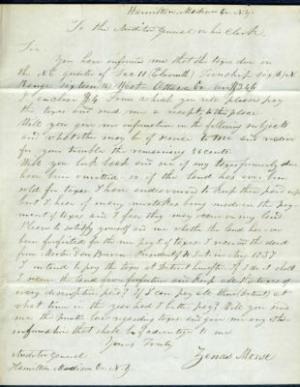 Hamilton Madison Co. N.Y.
To the Auditor General or his Clerk
Sir
You have informed me that the taxes due on
the NE quarter of Sec 11 (Eleventh) Township six (6) N
Range sixteen 16 West Ottawa Co are $3.46
I enclose $4 From which you will please pay
the taxes and send me a receipt, to this place
Will you give me information in the following subjects
and whatever may be of use to me and receive
for your trouble the remaining cents
Will you look back and see if any taxes formerly due
have been omitted, or if the land has ever been
sold for taxes I have endeavored to keep them paid up
but I hear of many mistakes being made in the pay-
ment of taxes and I fear they may occur on my land
Please to satisfy yourself and me whether the land has ever
been forfeited for the non pay't of taxes. I received the deed
from Martin Van Buren President of U. States in May 1837
I intend to pay the taxes at Detroit hereafter If I do it shall
I the land from forfeiture and keep all the taxes of
every description paid? If I can pay
what time in the year had I better pay? Will you give
me the law regarding taxes and give me any other
information that shall be of advantage to me
Yours Truly
Auditor General
Zenas Morse
Hamilton Madison Co. N.Y.